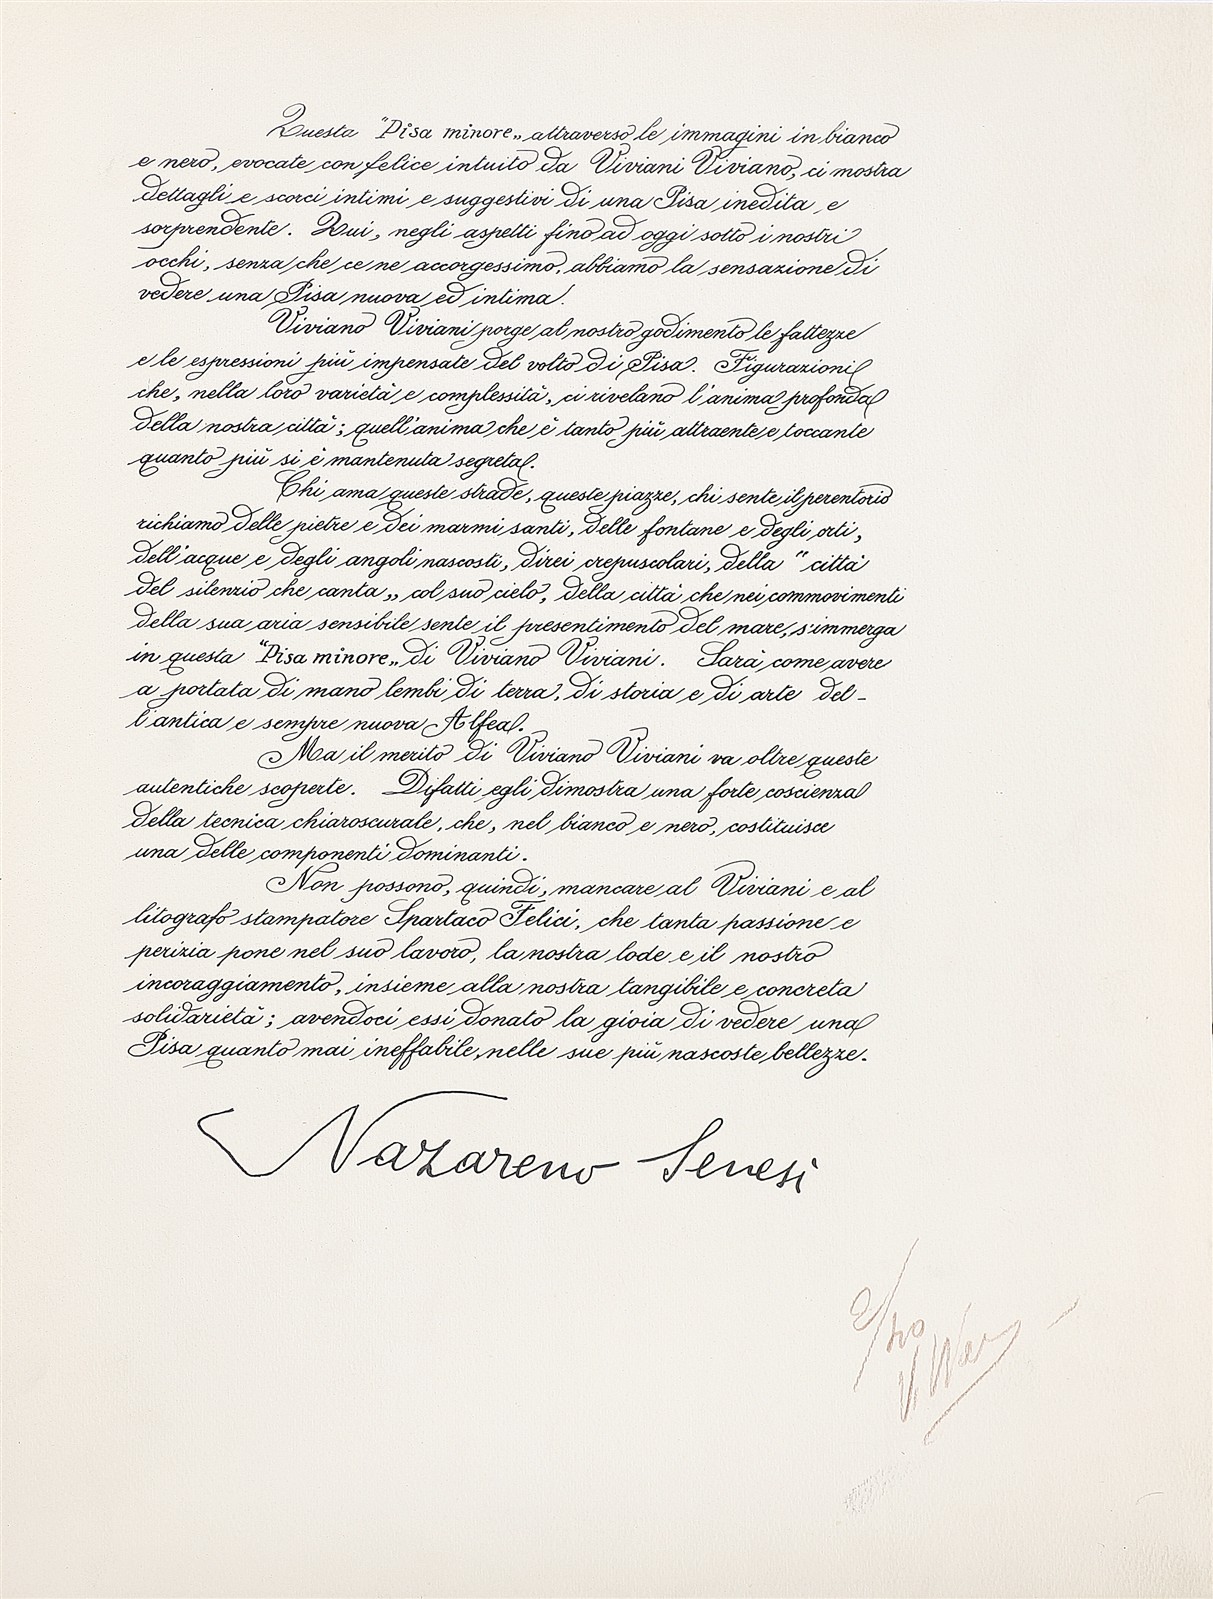 Questa "Pisa minore„ attraverso le immagini in bianco
e nero, evocate con felice intuito da Viviani Viviano, ci mostra
dettagli e scorci intimi e suggestivi di una Pisa inedita e
sorprendente. Qui, negli aspetti fino ad oggi sotto i nostri
occhi, senza che ce ne accorgessimo, abbiamo la sensazione di
vedere una Pisa nuova ed intima.
Viviano Viviani porge al nostro godimento le fattezze
e le espressioni più impensate del volto di Pisa. Figurazioni
che, nella loro varietà e complessità, ci rivelano l'anima profonda
della nostra città; quell'anima che è tanto più attraente e toccante
quanto più si è mantenuta segreta.
Chi ama queste strade, queste piazze, chi sente il perentorio
richiamo delle pietre e dei marmi santi, delle fontane e degli orti,
dell'acque e degli angoli nascosti, direi crepuscolari, della "città
del silenzio che canta„ col suo cielo, della città che nei commovimenti
della sua aria sensibile sente il presentimento del mare, s'immerga
in questa "Pisa minore„ di Viviano Viviani. Sarà come avere
a portata di mano lembi di terra, di storia e di arte del-
l'antica e sempre nuova Alfea.
Ma il merito di Viviano Viviani va oltre queste
autentiche scoperte. Difatti egli dimostra una forte coscienza
della tecnica chiaroscurale, che, nel bianco e nero, costituisce
una delle componenti dominanti.
Non possono, quindi, mancare al Viviani e al
litografo stampatore Spartaco Felici, che tanta passione e
perizia pone nel suo lavoro, la nostra lode e il nostro
incoraggiamento, insieme alla nostra tangibile e concreta
solidarietà; avendoci essi donato la gioia di vedere una
Pisa quanto mai ineffabile, nelle sue più nascoste bellezze.
Nazareno Senesi